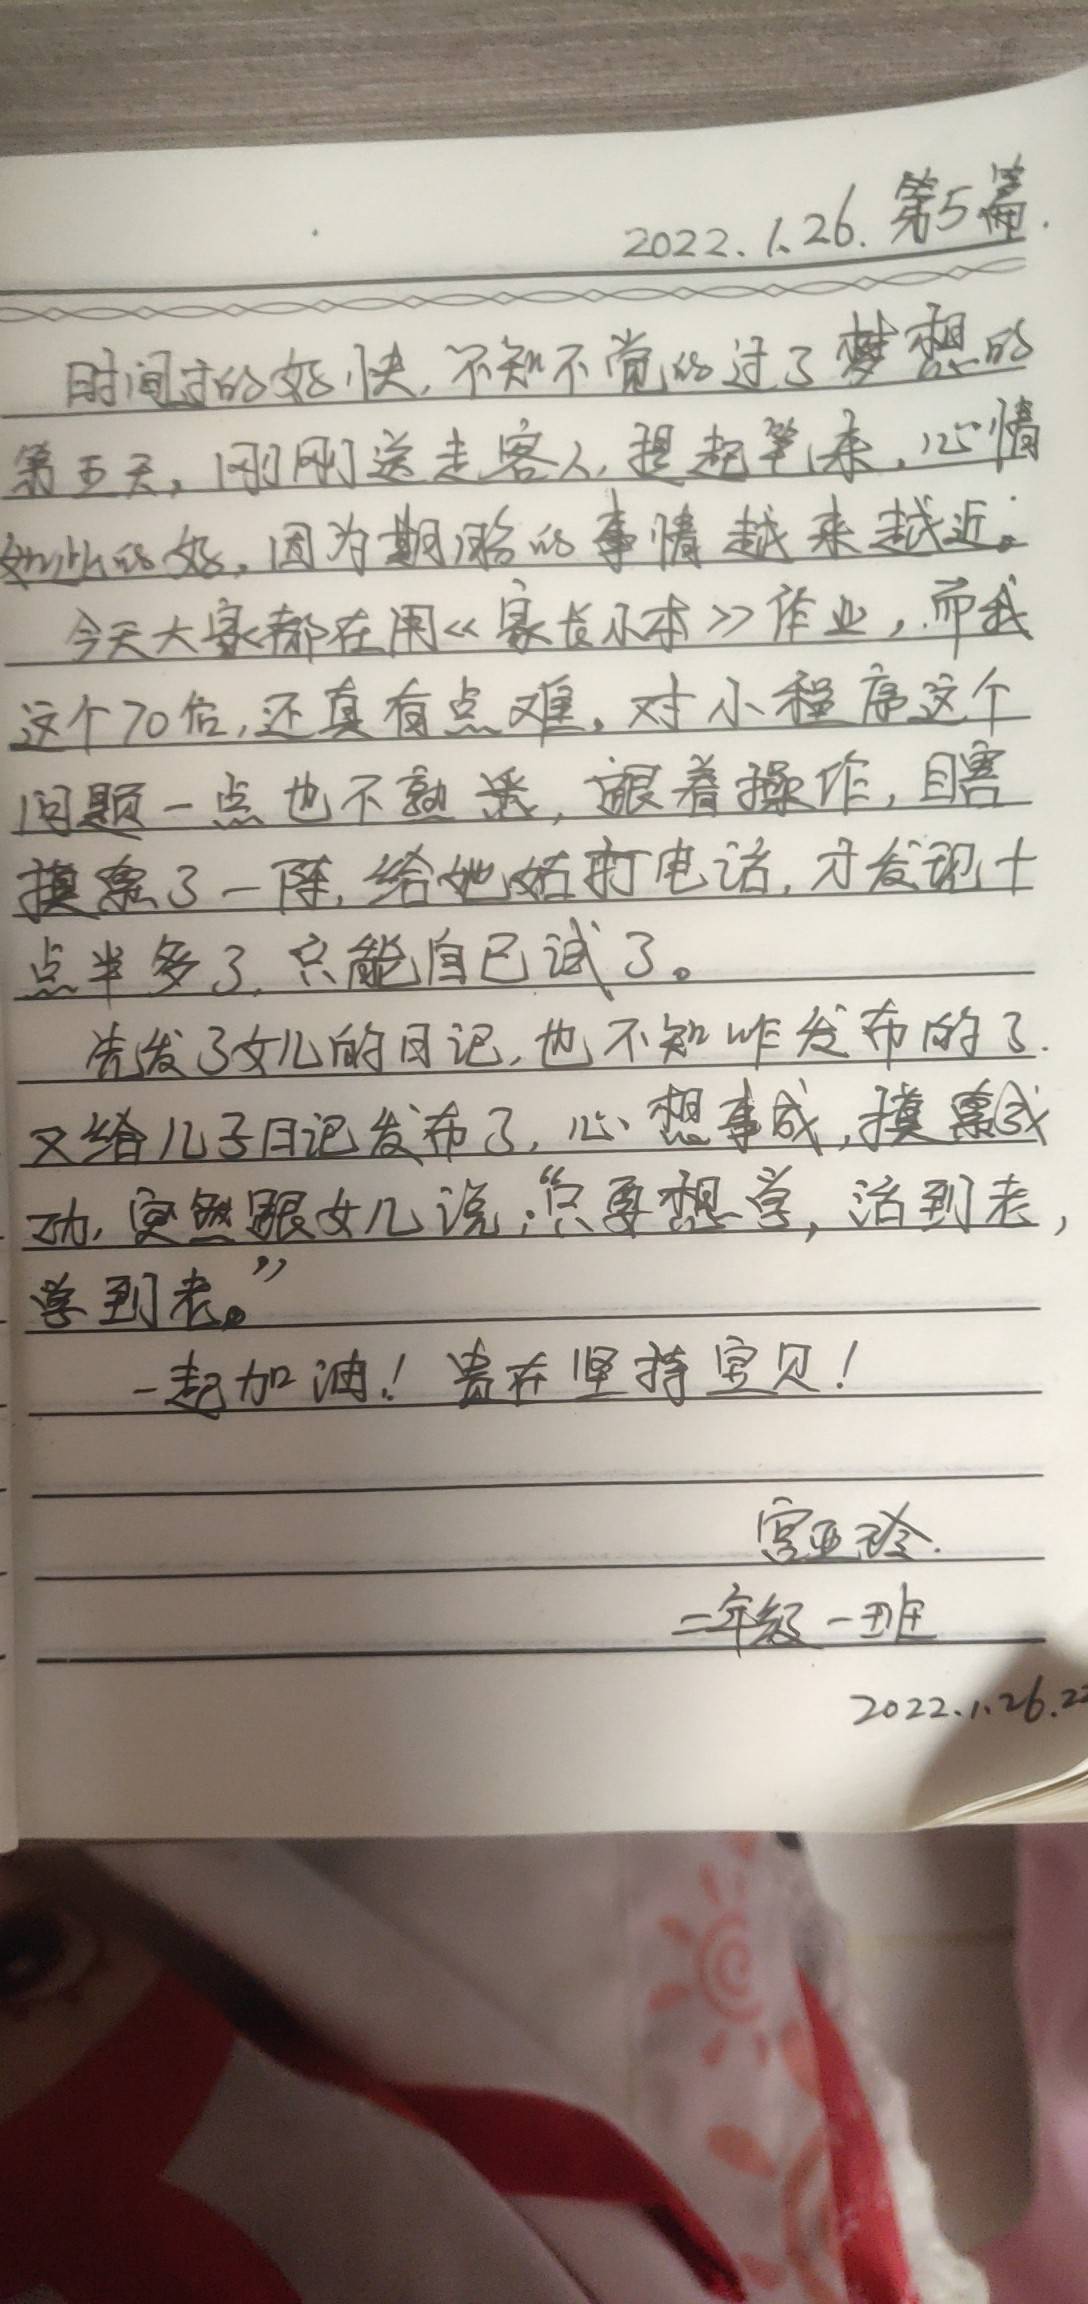 2022.1.26. 第5篇.
时间过的好快,不知不觉的过了梦想的
第五天,刚刚送走客人,提起笔来,心情
如此的好,因为期盼的事情越来越近。
今天大家都在用《家长小本》作业,而我
这个70后,还真有点难。对小程序这个
问题一点也不熟悉,跟着操作,瞎
摸索了一阵,给她姑打电话,才发现十
点半多了,只能自己试了。
先发了女儿的日记,也不知咋发布的了.
又给儿子日记发布了,心想事成,摸索成
功,突然跟女儿说:“只要想学,活到老,
学到老。”
一起加油!贵在坚持宝贝!
宫亚玲.
二年级一班
2022.1.26.22